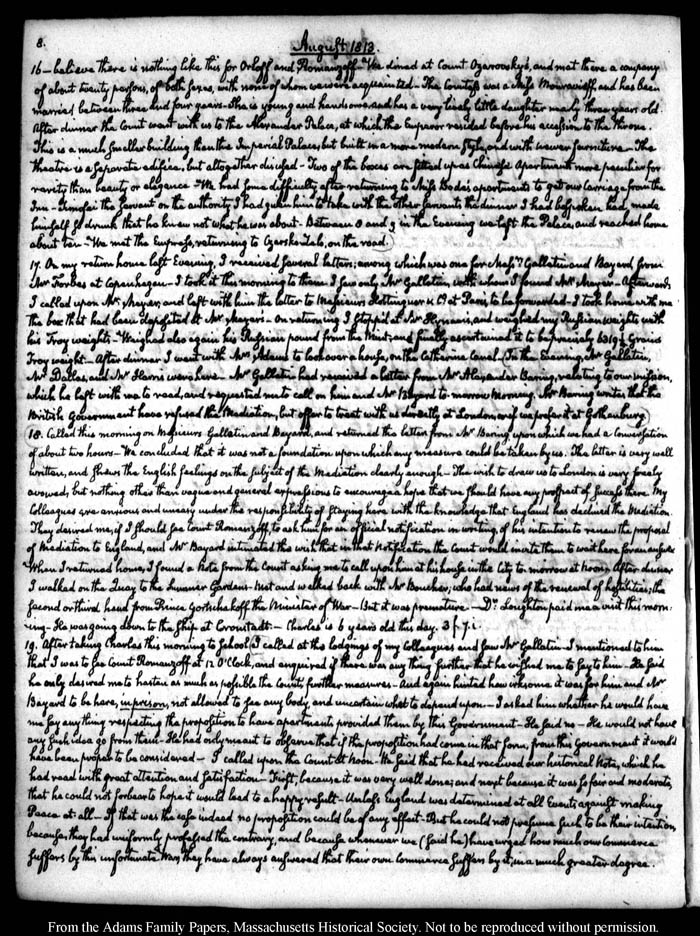 8.
August 1813.
16 - believe there is nothing like this for Orloff and Romanzoff. We dined at Count Ozarovsky's, and met there a company
of about twenty persons, of both sexes, with none of whom we were acquainted - The Countess was a Miss Mouravieff, and has been
married between three and four years - She is young and handsome, and has a very lively little daughter nearly three years old.
After dinner the Count went with us to the Alexander Palace, at which the Emperor resided before his accession to the throne.
This is a much smaller building than the Imperial Palace, but built in a more modern style, and with newer furniture - The
theatre is a separate edifice, but altogether disused - Two of the boxes are fitted up as Chinese Apartments more peculiar for
rarity than beauty or elegance - We had some difficulty after returning to Miss Bode's apartments to get our Carriage from the
Inn - the servant on the authority I had given him to take with the other servants the dinner I had bespoken had made
himself so drunk that he knew not what he was about - Between 8 and 9 in the Evening we left the Palace, and reached home
about ten - We met the Empress, returning to Czarskozelo, on the road.
17. On my return home last Evening, I received several letters; among which was one for Mess.rs Gallatin and Bayard, from
Mr Forbes at Copenhagen - I took it this morning to them. I saw only Mr Gallatin, with whom I found Mr Meyer - Afterwards
I called upon Mr Meyer, and left with him the letter to Messieurs Hottinguer & Co. at Paris, to be forwarded - I took home with me
the box that had been deposited at Mr Meyer's - On returning I stopp'd at Mr and weighed my Russian weights with
his Troy weights - Weighed also again his Russian pound from the Mint, and finally ascertained it to be precisely 6319½ Grains
Troy weight - After dinner I went with Mrs Adams to look over a house, on the Catherine Canal. In the Evening, Mr Gallatin,
Mr Dallas, and Mr Harris were here - Mr Gallatin had received a letter from Mr Alexander Baring, relating to our mission,
which he left with me to read, and requested me to call on him and Mr Bayard to-morrow Morning. Mr Baring writes that the
British Government have refused the Mediation, but offer to treat with us directly at London, or if we prefer it at Gothenburg.
18. Called this morning on Messieurs Gallatin and Bayard, and returned the letter from Mr Baring upon which we had a Conversation
of about two hours - We concluded that it was not a foundation upon which any measure could be taken by us. The letter is very well
written, and shews the English feelings on the subject of the Mediation clearly enough - The wish to draw us to London is very freely
avowed, but nothing other than vague and general expressions to encourage a hope that we should have any prospect of success there. My
Colleagues are anxious and uneasy under the responsibility of staying here with the knowledge that England has declined the Mediation.
They desired me, if I should see Count Romanzoff, to ask him for an official notification in writing, of his intention to renew the proposal
of Mediation to England, and Mr Bayard intimated the wish that in that Notification the Count would invite them to wait here for an answer.
When I returned home, I found a Note from the Count asking me to call upon him at his house in the City to-morrow at Noon. After dinner
I walked on the Quay to the Summer Gardens - Met and walked back with Mr Boucher, who had news of the renewal of hostilities, the
second or third hand from Prince Gortchakoff the Minister of War - But it was premature - Dr. Loughton paid me a visit this morn-
ing - He was going down to the ship at Cronstadt - Charles is 6 years old this day. 3 f 7. i.
19. After taking Charles this morning to School I called at the lodgings of my Colleagues and saw Mr Gallatin - I mentioned to him
that I was to see Count Romanzoff at 12 O'Clock, and enquired if there was any thing further that he wished me to say to him - He said
he only desired me to hasten as much as possible the Count's further measures - And again hinted how irksome it was for him and Mr
Bayard to be here, in prison, not allowed to see any body, and uncertain what to depend upon - I asked him whether he would have
me say any thing respecting the proposition to have apartments provided them by this Government - He said no - He would not have
any such idea go from them - He had only meant to observe that if the proposition had come in that form, from this Government it would
have been proper to be considered - I called upon the Count at Noon - He said that he had received our historical Note, which he
had read with great attention and satisfaction - First, because it was very well done; and next because it was so fair and moderate,
that he could not forbear to hope it would lead to a happy result - Unless England was determined at all Events against making
Peace at all - If that was the case indeed no proposition could be of any effect - But he could not presume such to be their intention,
because they had uniformly professed the contrary, and because whenever we (said he) have urged how much our Commerce
suffers by this unfortunate War, they have always answered that their own Commerce suffers by it, in a much greater degree.
From the Adams Family Papers, Massachusetts Historical Society. Not to be reproduced without permission.